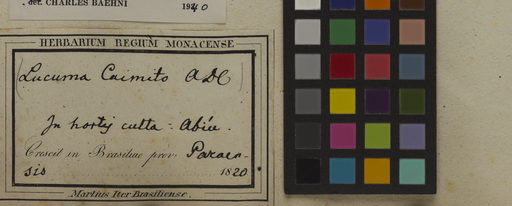 det. CHARLES BAEHNI 1940
HERBARIUM REGIUM MONACENSE
(Lucuma Caimito ADC)
In hortis culta - Abiu.
Crescit in Brasiliae prov. Paraen-
sis 1820
Martius Iter Brasiliense.